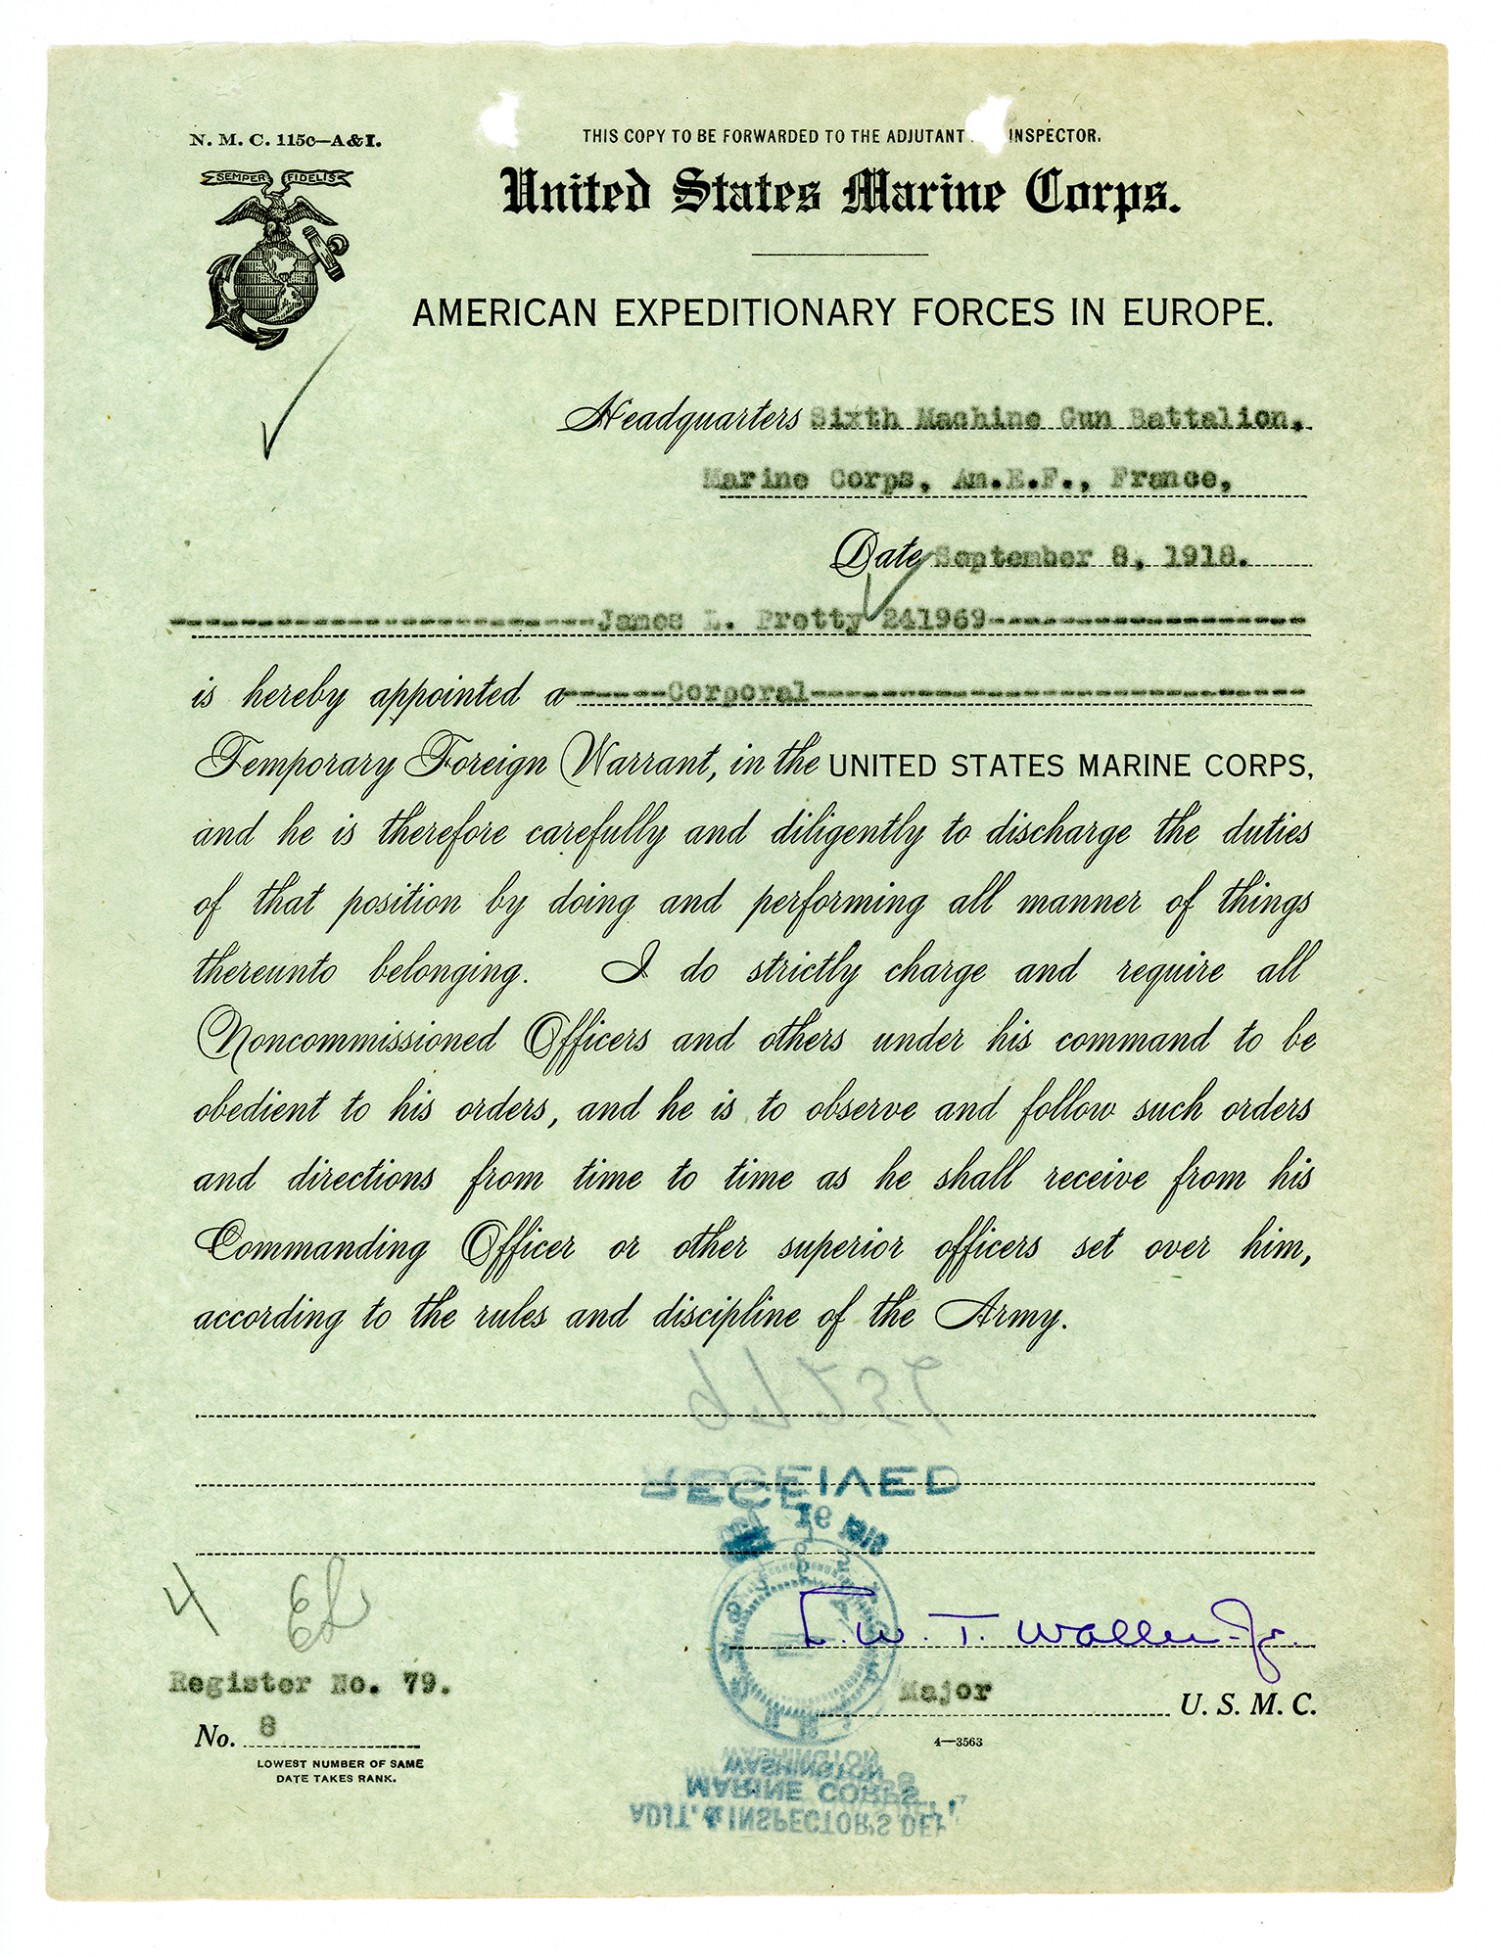 N. M. C. 115c—A&I.
THIS COPY TO BE FORWARDED TO THE ADJUTANT INSPECTOR.
SEMPER FIDELIS
United States Marine Corps.
AMERICAN EXPEDITIONARY FORCES IN EUROPE.
Headquarters Sixth Machine Gun Battalion,
Marine Corps, Am.E.F., France,
Date September 8, 1918.
James L. Pretty 241969
is hereby appointed a Corporal
Temporary Foreign Warrant, in the UNITED STATES MARINE CORPS,
and he is therefore carefully and diligently to discharge the duties
of that position by doing and performing all manner of things
thereunto belonging. I do strictly charge and require all
Noncommissioned Officers and others under his command to be
obedient to his orders, and he is to observe and follow such orders
and directions from time to time as he shall receive from his
Commanding Officer or other superior officers set over him,
according to the rules and discipline of the Army.
RECEIVED
16
4
L. W. T. Waller Jr.
Register No. 79.
Major U. S. M. C.
No. 8
4—3563
LOWEST NUMBER OF SAME
DATE TAKES RANK.
WASHINGTON
MARINE CORPS
ADJT. & INSPECTOR'S